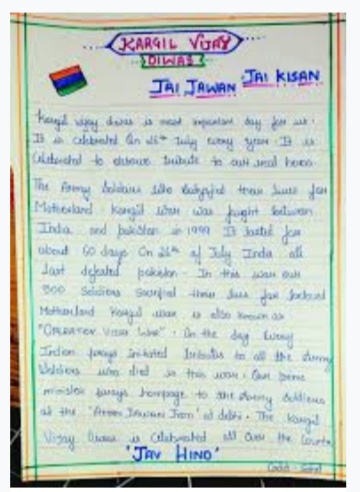 KARGIL VIJAY
DIWAS
JAI JAWAN JAI KISAN
Kargil vijay diwas is most important day for us.
It is celebrated On 26th July every year. It is
Celebrated to tribute to our real heros.
The Army Soldiers who their lives for
Motherland Kargil war was fought between
India and pakistan in 1999 It lasted for
about 60 days On 26th of July India at
last defeated pakistan. In this war our
500 Soldiers their lives for
Motherland Kargil war is also known as
"OPERATION VIJAY War". On the day Every
Indian tributes to all the Army
Soldiers who died in this war. Our prime
minister to the Army Soldiers
at the "Amar Jawan" at delhi. The Kargil
Vijay Diwas is Celebrated all Over the
"JAY HIND"